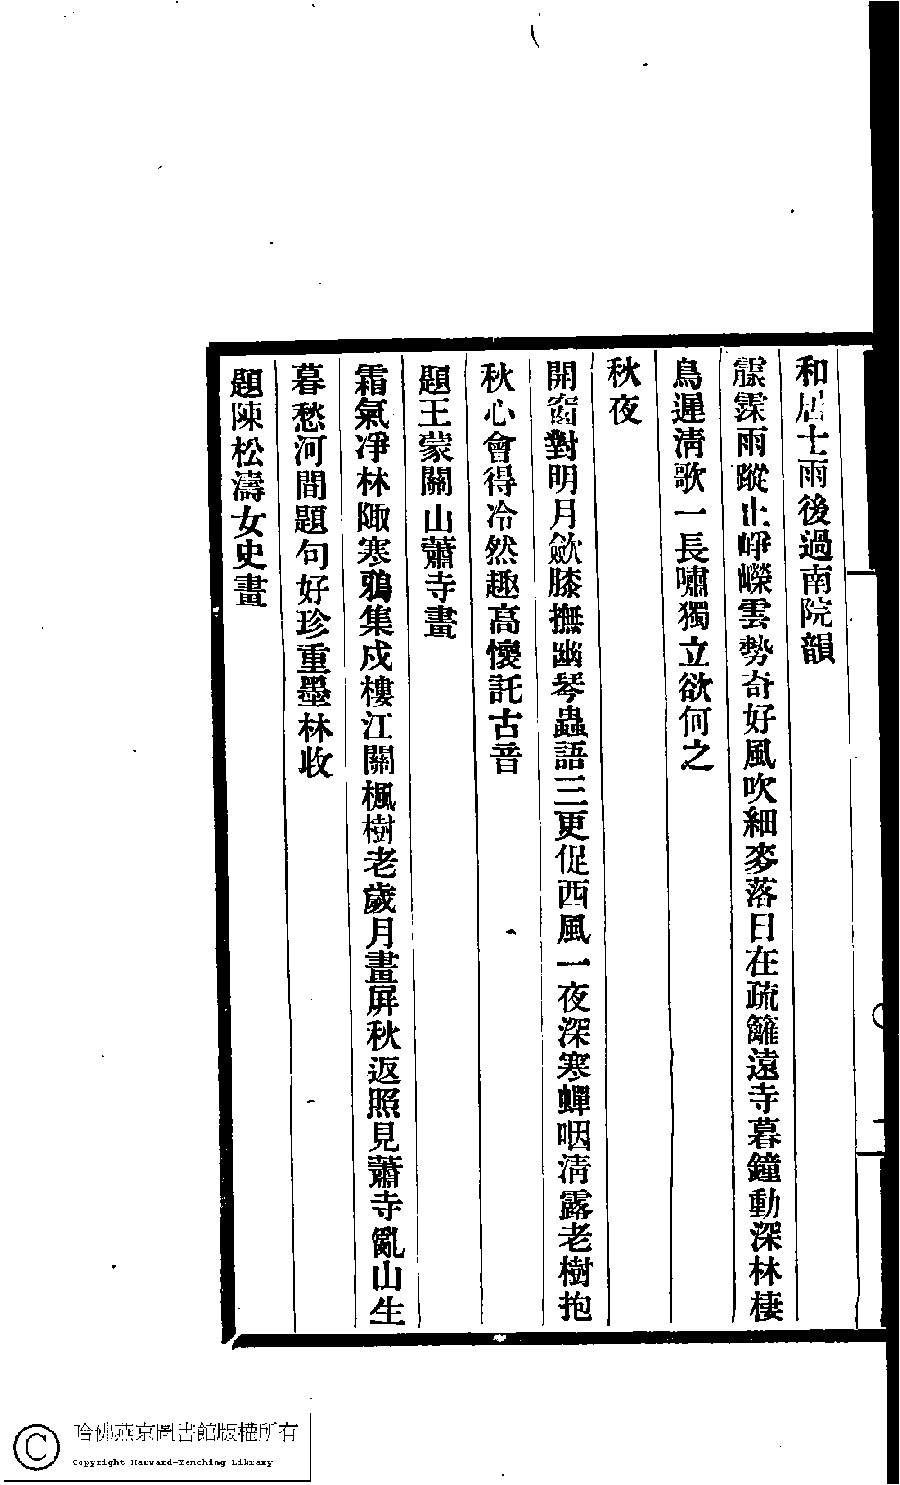 和居士雨後過南院韻
霡霂雨蹤止崢嶸雲勢奇好風吹細麥落日在疏籬遠寺暮鐘動深林棲
鳥遲清歌一長嘯獨立欲何之
秋夜
開窗對明月斂膝撫幽琴蟲語三更促西風一夜深寒蟬咽清露老樹抱
秋心會得冷然趣高懷託古音
題王蒙關山蕭寺畫
霜氣凈林陬寒鴉集戍樓江關楓樹老歲月畫屏秋返照見蕭寺亂山生
暮愁河間題句好珍重墨林收
題陳松濤女史畫
哈佛燕京圖書館版權所有
Copyright Harvard-Yenching Library